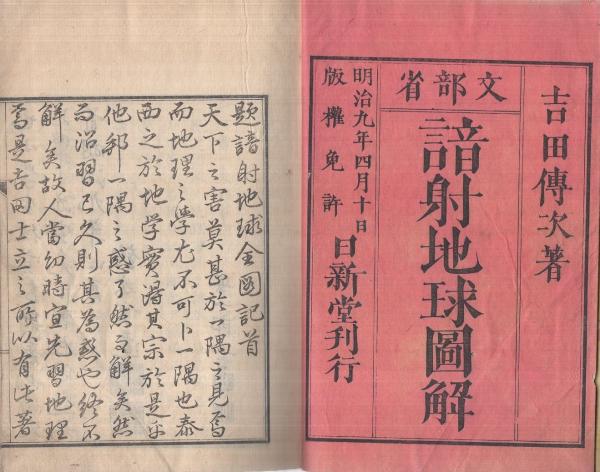 吉田傳次著
文部省
諳射地球圖解
明治九年四月十日
版權免許
日新堂刊行
題諳射地球全圖記首
天下之害莫甚於一隅之見焉
而地理之學尤不可卜一隅也泰
西之於地学實得其宗於是乎
他邦一隅之惑了然又解矣然
而沿習已久則其為惑也終不
解矣故人當幼時宜先習地理
焉是吉田士立之所以有此著